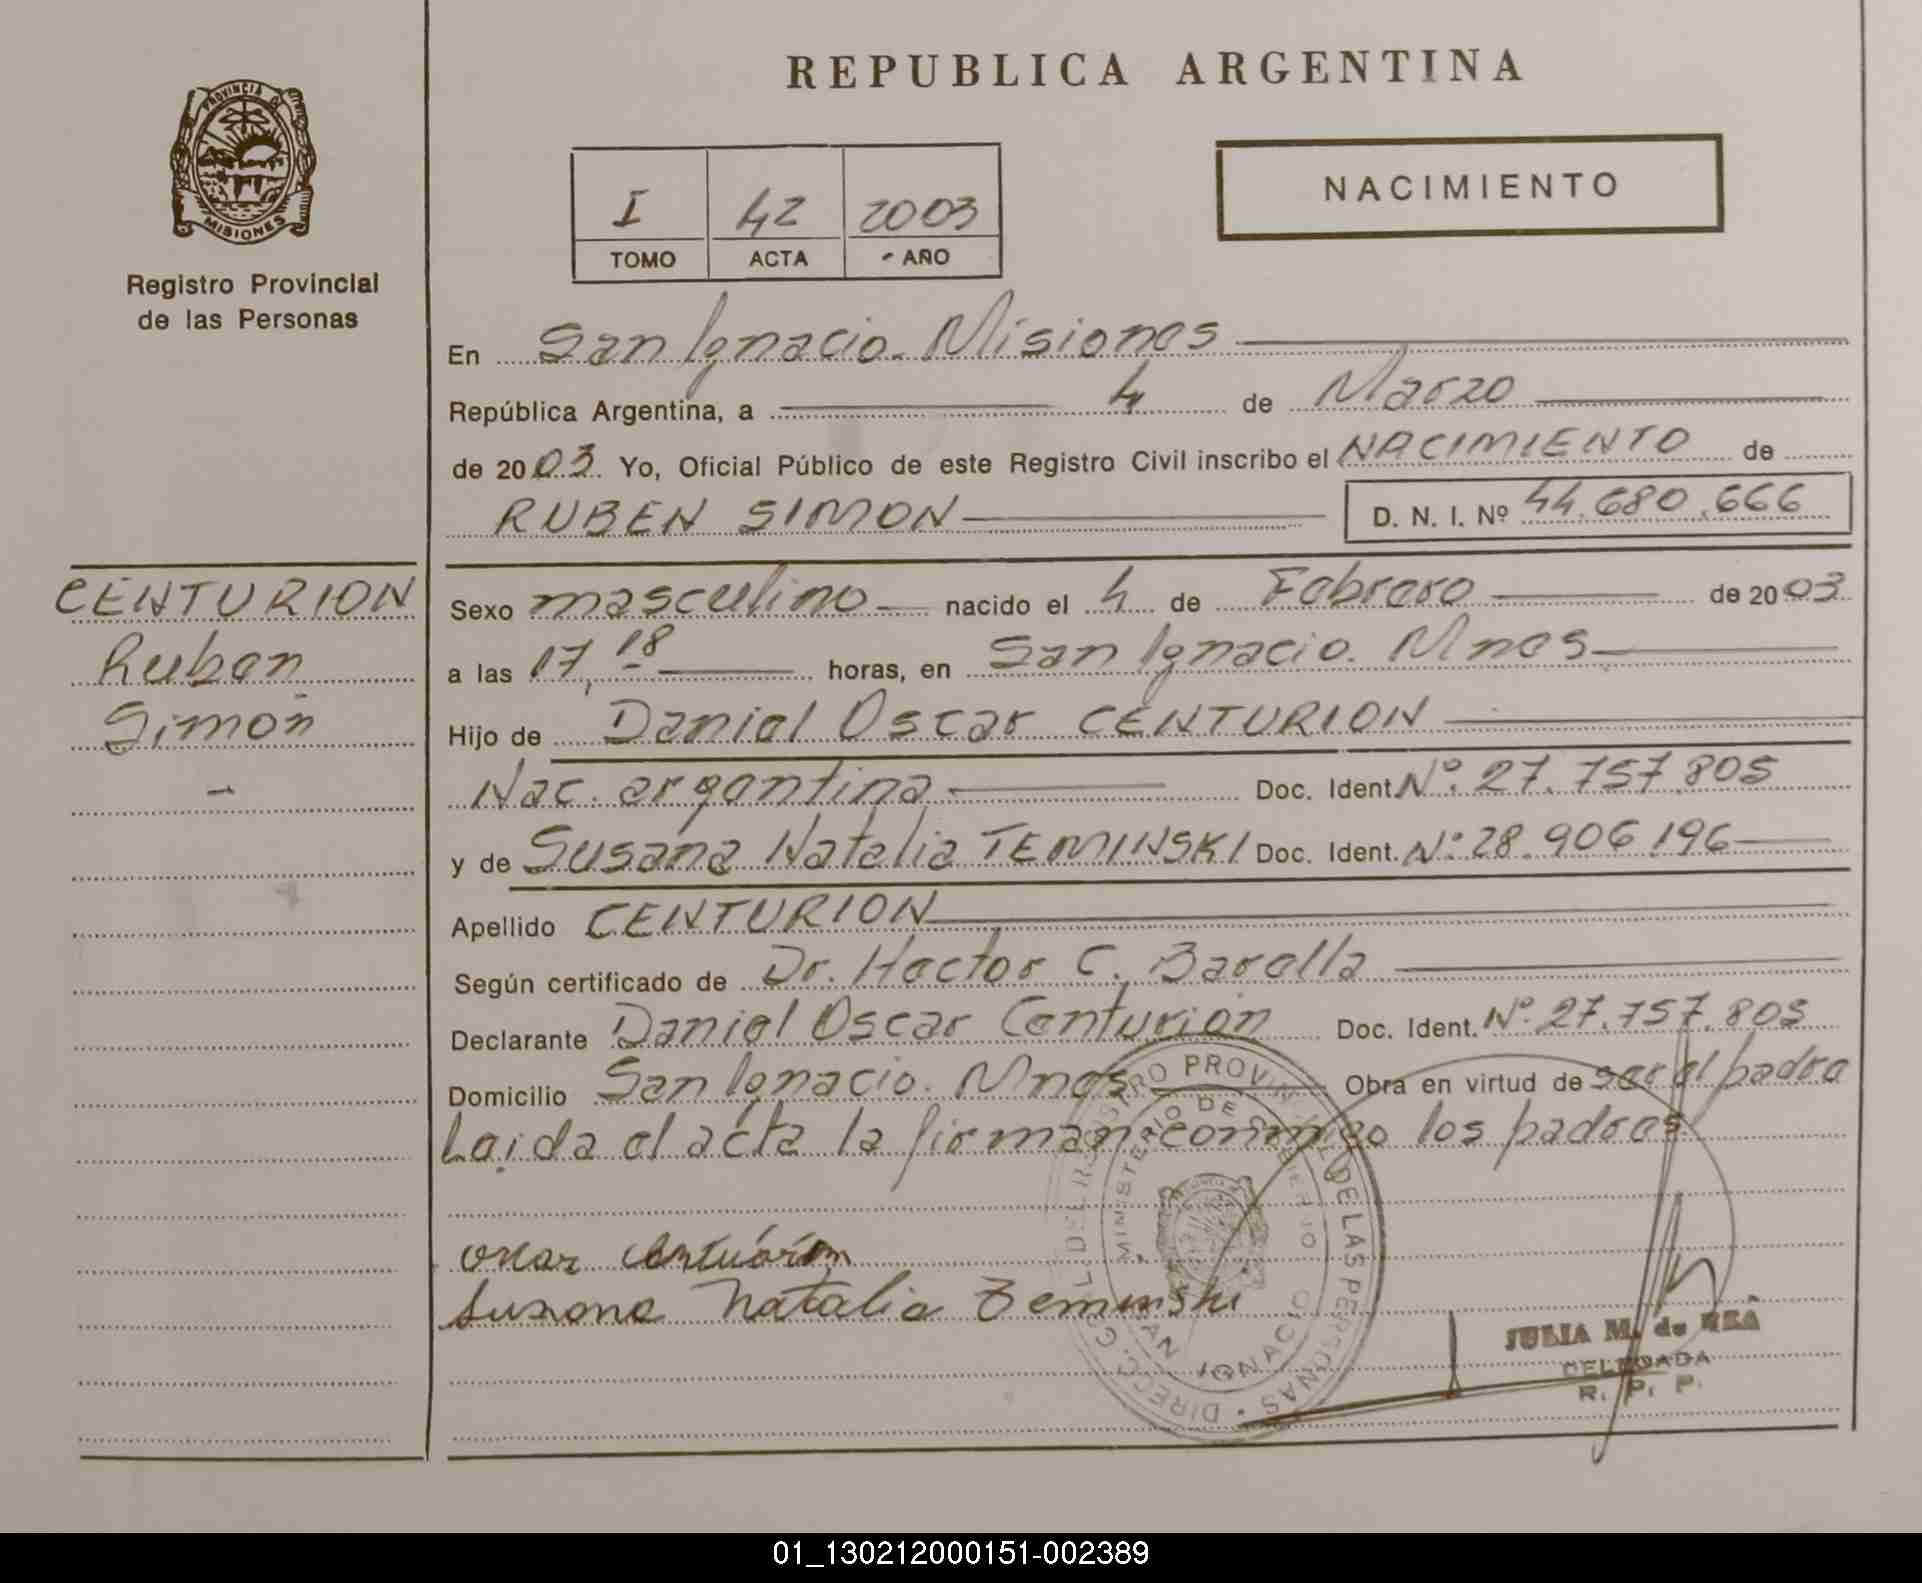 REPUBLICA ARGENTINA
PROVINCIA DE
MISIONES
Registro Provincial
de las Personas
I 42 2003
TOMO ACTA AÑO
NACIMIENTO
En San Ignacio. Misiones
República Argentina, a 4 de Marzo
de 2003. Yo, Oficial Público de este Registro Civil inscribo el NACIMIENTO de
RUBEN SIMON D. N. I. Nº 44.680.666
CENTURION
Ruben
Simon
Sexo masculino nacido el 4 de Febrero de 2003
a las 17,18 horas, en San Ignacio. Mnes
Hijo de Daniel Oscar CENTURION
Nac. argentina Doc. Ident. Nº. 27.757.805
y de Susana Natalia TEMINSKI Doc. Ident. Nº 28.906.196
Apellido CENTURION
Según certificado de Dr. Hector C. Barella
Declarante Daniel Oscar Centurion Doc. Ident. Nº. 27.757.805
Domicilio San Ignacio. Mnes Obra en virtud de ser el padre
Leida el acta la firman conmigo los padres
Oscar Centurión
Susana Natalia Teminski
DIRECC. GRAL. DEL REGISTRO PROVINCIAL DE LAS PERSONAS
MINISTERIO DE GOBIERNO
SAN IGNACIO
JULIA M. de REÁ
DELEGADA
R. P. P.
01_130212000151-002389